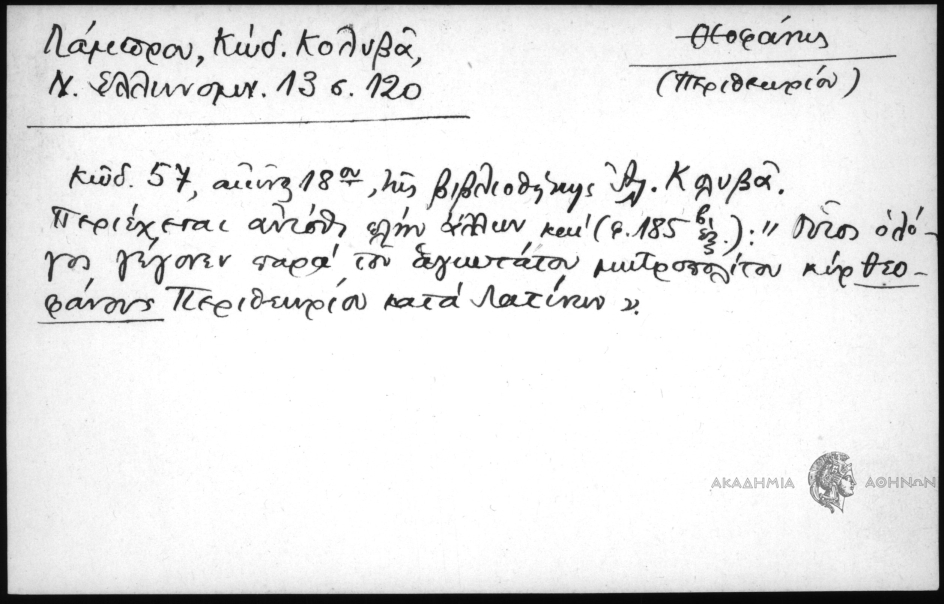 Λάμπρου, Κώδ. Κολυβᾶ,
Ν. Ἑλληνομν. 13 σ. 120
Θεοφάνης
(Περιθεωρίου)
Κῶδ. 57, αἰῶνος 18ου, τῆς βιβλιοθήκης Ἀλ. Κολυβᾶ.
Περιέχεται αὐτόθι πλὴν ἄλλων καί (φ. 185 β ἑξ.): " Οὗτος ὁ λό-
γος γέγονεν παρὰ τοῦ ἁγιωτάτου μητροπολίτου κὺρ Θεο-
φάνους Περιθεωρίου κατὰ Λατίνων ».
ΑΚΑΔΗΜΙΑ ΑΘΗΝΩΝ